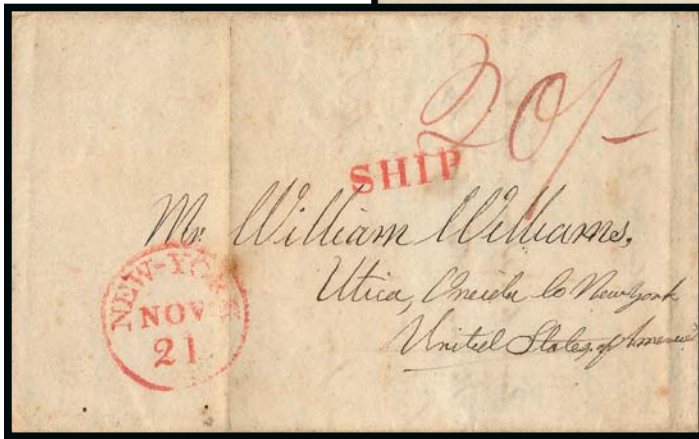 20/-
SHIP
Mr. William Williams,
Utica, Oneida Co New York
United States of America
NEW-YORK
NOV
21